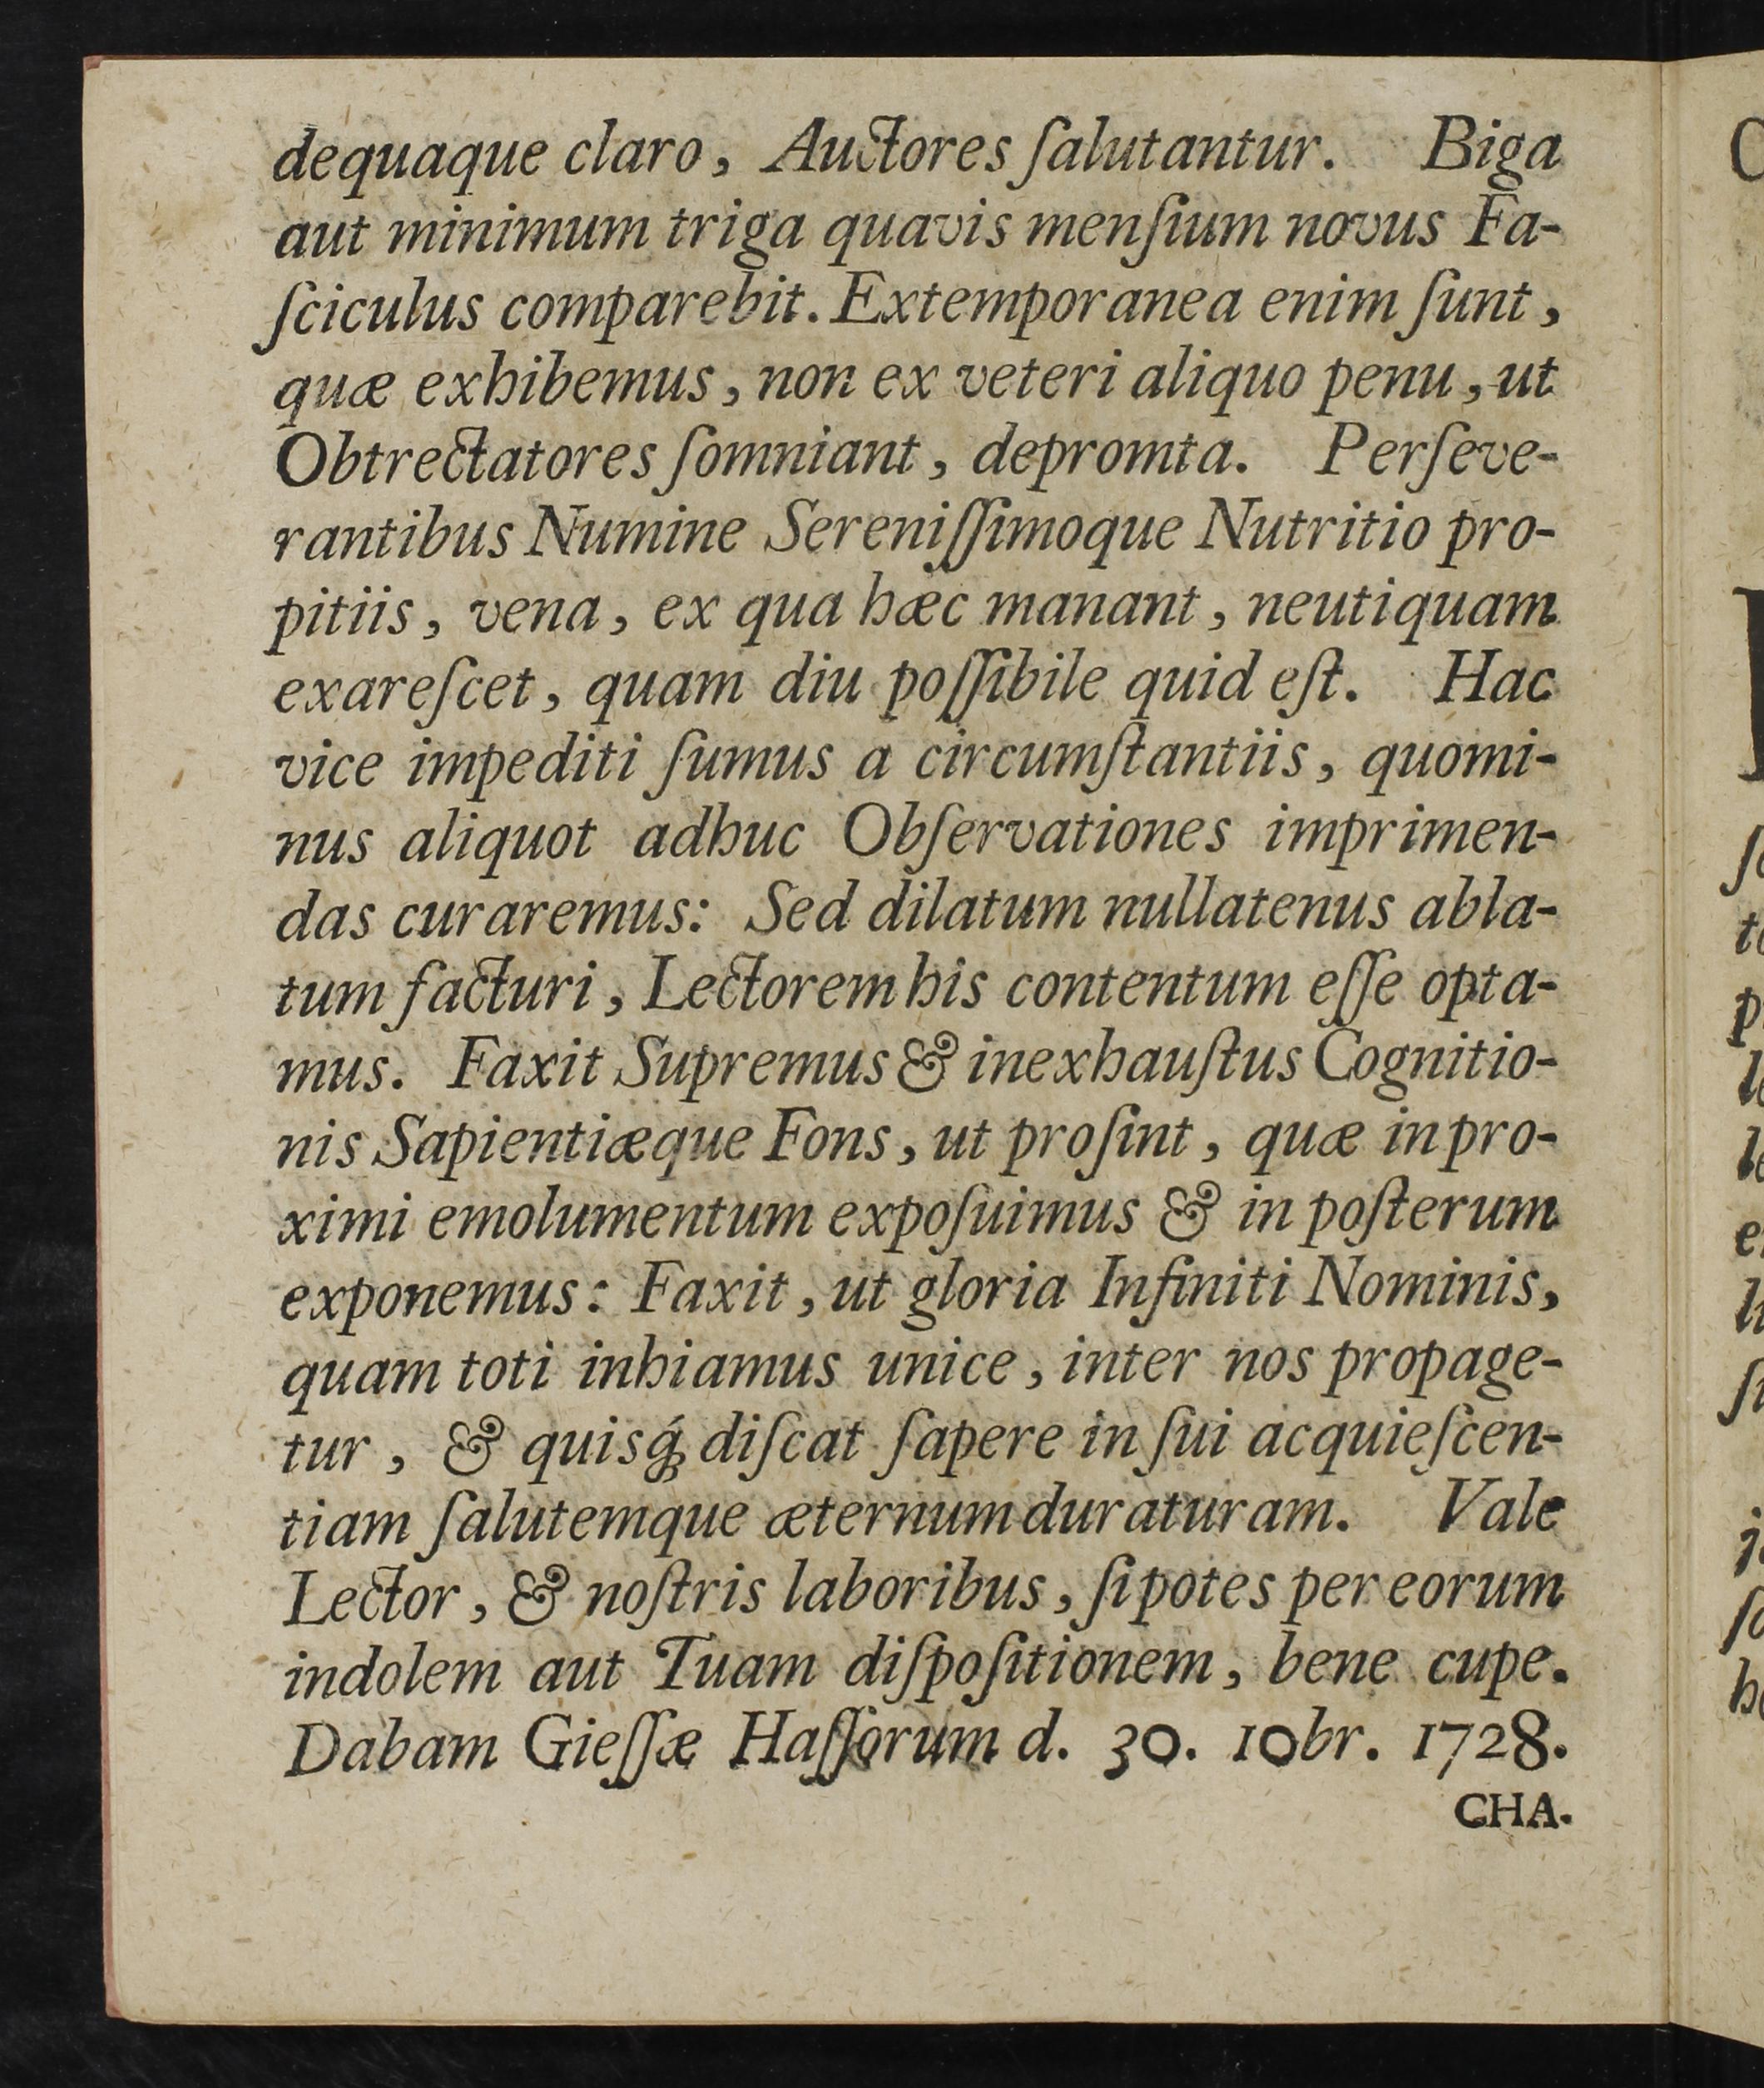 dequaque claro, Auctores ſalutantur. Biga
aut minimum triga quavis menſium novus Fa-
ſciculus comparebit. Extemporanea enim ſunt,
quæ exhibemus, non ex veteri aliquo penu, ut
Obtrectatores ſomniant, depromta. Perſeve-
rantibus Numine Sereniſſimoque Nutritio pro-
pitiis, vena, ex qua hæc manant, neutiquam
exareſcet, quam diu poſſibile quid eſt. Hac
vice impediti ſumus a circumſtantiis, quomi-
nus aliquot adhuc Obſervationes imprimen-
das curaremus: Sed dilatum nullatenus abla-
tum facturi, Lectorem his contentum eſſe opta-
mus. Faxit Supremus & inexhauſtus Cognitio-
nis Sapientiæque Fons, ut proſint, quæ in pro-
ximi emolumentum expoſuimus & in poſterum
exponemus: Faxit, ut gloria Infiniti Nominis,
quam toti inhiamus unice, inter nos propage-
tur, & quisq́; diſcat ſapere in ſui acquieſcen-
tiam ſalutemque æternum duraturam. Vale
Lector, & noſtris laboribus, ſi potes per eorum
indolem aut Tuam diſpoſitionem, bene cupe.
Dabam Gieſſæ Haſſorum d. 30. 10br. 1728.
CHA-